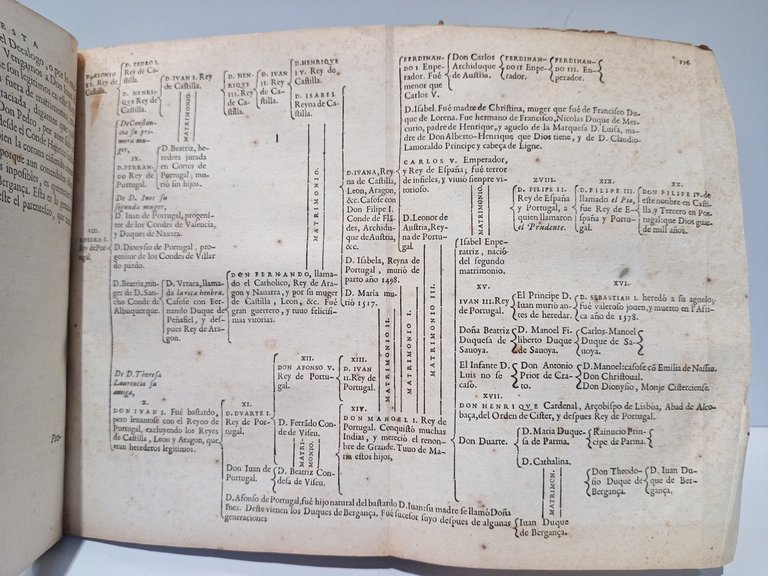 ESTA
el Decalogo, o por
Vengamos a Don
se son legitimos en ellas
fuera de matrimonio
graciada, digamos que
Don Pedro, por auer
desde el Conde Henri
en la corona cuñados
porque aun concedidas
inposibles, es quanto
Bergança. Esta es la
este el parentesco, que
Pro-
D. ALONSO
XI. Rey
de Castilla.
D. PEDRO I.
Rey de Castilla.
D. HENRIQVE
Rey de
Castilla.
D. IVAN I. Rey
de Castilla.
MATRIMONIO.
D. HENRIQVE III.
Rey de
Castilla.
D. IVAN
II. Rey
de Castilla.
D. HENRIQVE
IV. Rey de
Castilla.
D. ISABEL
Reyna de Castilla.
MATRIMONIO.
De Constancia
su primera
muger,
IX.
D. FERNANDO
Rey de
Portugal.
D. Beatriz, heredera
jurada
en Cortes de
Portugal; murio
sin hijos.
De D. Ines su
segunda muger,
D. Iuan de Portugal, progenitor
de los Condes de Valencia,
y Duques de Naxara.
VIII.
D. PEDRO I.
Rey de Portugal.
D. Dionysio de Portugal, progenitor
de los Condes de Villar
do pardo.
D. Beatriz, muger
de D. Sancho
Conde de
Albuquerque.
D. Vrraca, llamada
la rica henbra.
Casose con
Fernando Duque
de Peñafiel, y despues
Rey de Aragon.
DON FERNANDO, llamado
el Catholico, Rey de Aragon
y Nauarra, y por su muger
de Castilla, Leon, &c. Fué
gran guerrero, y tuuo felicisimas
vitorias.
D. IVANA, Reyna
de Castilla,
Leon, Aragon,
&c. Casose con
Don Filipe I.
Conde de Flãdes,
Archiduque
de Austria,
&c.
D. Isabela, Reyna
de Portugal, murió de
parto año 1498.
D. Maria murió
1517.
De D. Theresa
Laurencia su
amiga,
X.
DON IVAN I. Fué bastardo,
pero leuantose con el Reyno de
Portugal, excluyendo los Reyes
de Castilla, Leon y Aragon, que
eran herederos legitimos.
XI.
D. DVARTE I.
Rey de Portugal.
XII.
DON AFONSO V.
Rey de Portugal.
XIII.
D. IVAN
II. Rey de
Portugal.
D. Ferrãdo Conde
de Viseu.
MATRIMONIO.
D. Beatriz Condesa
de Viseu.
Don Iuan de
Portugal.
XIV.
DON MANOEL I. Rey de
Portugal. Conquistó muchas
Indias, y mereció el renombre
de Grande. Tuuo de Maria
estos hijos,
MATRIMONIO II.
MATRIMONIO I.
MATRIMONIO III.
D. Afonso de Portugal, fué hijo natural del bastardo D. Iuan: su madre se llamó Doña
Ines. Deste vienen los Duques de Bergança, Fué sucesor suyo despues de algunas
generaciones
Iuan Duque
de Bergança.
136
FERDINANDO I
Enperador. Fué
menor que
Carlos V.
Don Carlos
Archiduque
de Austria.
FERDINANDO II
Enperador.
FERDINANDO III.
Enperador.
D. Isabel. Fué madre de Christina, muger que fué de Francisco Duque
de Lorena. Fué hermano de Francisco, Nicolas Duque de Mercurio,
padre de Henrique, y aguelo de la Marquesa D. Luisa, madre
de Don Alberto-Henrique que Dios tiene, y de D. Claudio
Lamoraldo Principe y cabeça de Ligne.
CARLOS V. Emperador,
y Rey de España; fué terror
de infieles, y viuió siempre vitorioso.
MATRIMONIO.
XVIII.
D. FILIPE II.
Rey de España
y Portugal, a
quien llamaron
el Prudente.
XIX.
D. FILIPE III.
llamado el Pio,
fué Rey de España
y Portugal.
XX.
DON FILIPE IV. de
este nombre en Castilla,
y Tercero en Portugal:
que Dios guarde
mil años.
D. Leonor de
Austria, Reyna
de Portugal.
Isabel Enperatriz,
nació del
segundo
matrimonio.
XV.
IVAN III. Rey
de Portugal.
El Principe D.
Iuan murió antes
de heredar.
XVI.
D. SEBASTIAN I. heredó a su aguelo;
fué valeroso jouen, y muerto en Africa
año de 1578.
Doña Beatriz
Duquesa de
Sauoya.
D. Manoel Filiberto
Duque
de Sauoya.
Carlos-Manoel
Duque de Sauoya.
El Infante D.
Luis no se casó.
Don Antonio
Prior de Crato.
D. Manoel: casose cõ Emilia de Nassau.
Don Christoual.
Don Dionysio, Monje Cisterciense.
XVII.
DON HENRIQVE Cardenal, Arçobispo de Lisboa, Abad de Alcobaça,
del Orden de Cister, y despues Rey de Portugal.
Don Duarte.
D. Maria Duquesa
de Parma.
Rainucio Principe
de Parma.
D. Cathalina.
MATRIMON.
Don Theodosio
Duque de
Bergança.
D. Iuan Duque
de Bergança.